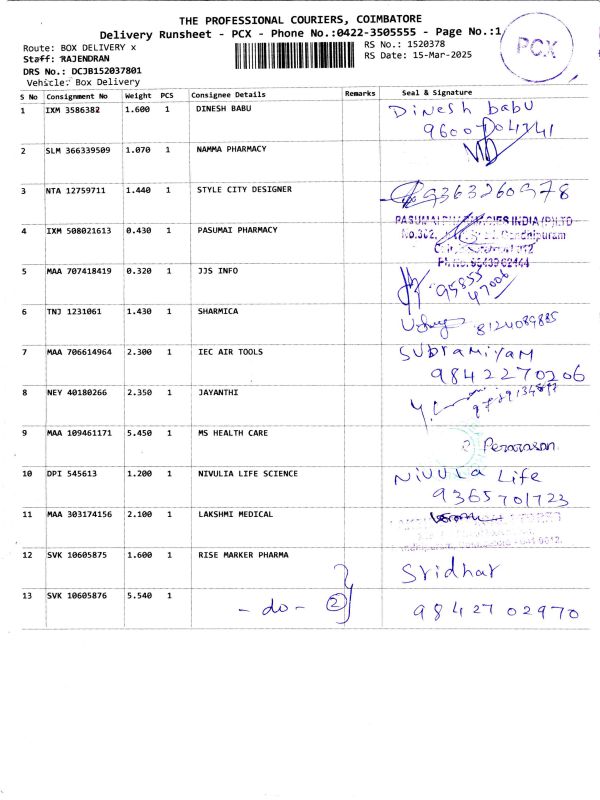 THE PROFESSIONAL COURIERS, COIMBATORE
Delivery Runsheet - PCX - Phone No.:0422-3505555 - Page No.:1
PCX
Route: BOX DELIVERY x
RS No.: 1520378
Staff: RAJENDRAN
RS Date: 15-Mar-2025
DRS No.: DCJB152037801
Vehicle: Box Delivery
S No Consignment No Weight PCS Consignee Details Remarks Seal & Signature
1 IXM 3586382 1.600 1 DINESH BABU Dinesh babu
2 SLM 366339509 1.070 1 NAMMA PHARMACY
3 NTA 12759711 1.440 1 STYLE CITY DESIGNER 9363260978
4 IXM 508021613 0.430 1 PASUMAI PHARMACY
INDIA (P) LTD
No.302,
5 MAA 707418419 0.320 1 JJS INFO 95855
47006
6 TNJ 1231061 1.430 1 SHARMICA 8124089885
7 MAA 706614964 2.300 1 IEC AIR TOOLS Subramiyam
9842270206
8 NEY 40180266 2.350 1 JAYANTHI
9 MAA 109461171 5.450 1 MS HEALTH CARE
10 DPI 545613 1.200 1 NIVULIA LIFE SCIENCE Nivula Life
9365701723
11 MAA 303174156 2.100 1 LAKSHMI MEDICAL
12 SVK 10605875 1.600 1 RISE MARKER PHARMA Sridhar
13 SVK 10605876 5.540 1 - do - 2 9842702970